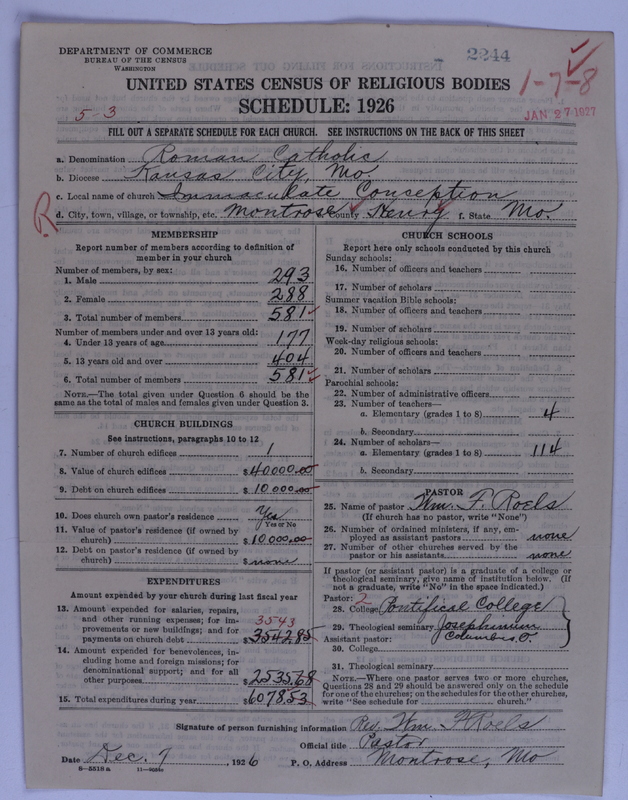 DEPARTMENT OF COMMERCE
BUREAU OF THE CENSUS
WASHINGTON
2244
1-7-8
JAN 27 1927
UNITED STATES CENSUS OF RELIGIOUS BODIES
SCHEDULE: 1926
5-3
FILL OUT A SEPARATE SCHEDULE FOR EACH CHURCH. SEE INSTRUCTIONS ON THE BACK OF THIS SHEET
a. Denomination Roman Catholic
b. Diocese Kansas City, Mo.
c. Local name of church Immaculate Conception
d. City, town, village, or township, etc. Montrose County Henry f. State Mo.
R
MEMBERSHIP
Report number of members according to definition of
member in your church
Number of members, by sex:
1. Male 293
2. Female 288
3. Total number of members 581
Number of members under and over 13 years old:
4. Under 13 years of age 177
5. 13 years old and over 404
6. Total number of members 581
NOTE.—The total given under Question 6 should be the
same as the total of males and females given under Question 3.
CHURCH BUILDINGS
See instructions, paragraphs 10 to 12
7. Number of church edifices 1
8. Value of church edifices $40000.00
9. Debt on church edifices $10000.00
10. Does church own pastor's residence Yes
Yes or No
11. Value of pastor's residence (if owned by
church) $10000.00
12. Debt on pastor's residence (if owned by
church) $none
EXPENDITURES
Amount expended by your church during last fiscal year
13. Amount expended for salaries, repairs,
and other running expenses; for im-
provements or new buildings; and for
payments on church debt $3542.85
3543
14. Amount expended for benevolences, in-
cluding home and foreign missions; for
denominational support; and for all
other purposes $2535.68
15. Total expenditures during year $6078.53
CHURCH SCHOOLS
Report here only schools conducted by this church
Sunday schools:
16. Number of officers and teachers
17. Number of scholars
Summer vacation Bible schools:
18. Number of officers and teachers
19. Number of scholars
Week-day religious schools:
20. Number of officers and teachers
21. Number of scholars
Parochial schools:
22. Number of administrative officers
23. Number of teachers—
a. Elementary (grades 1 to 8) 4
b. Secondary
24. Number of scholars—
a. Elementary (grades 1 to 8) 114
b. Secondary
PASTOR
25. Name of pastor Wm. F. Roels
(If church has no pastor, write "None")
26. Number of ordained ministers, if any, em-
ployed as assistant pastors none
27. Number of other churches served by the
pastor or his assistants none
If pastor (or assistant pastor) is a graduate of a college or
theological seminary, give name of institution below. (If
not a graduate, write "No" in the space indicated.)
Pastor: 2
28. College Pontifical College
29. Theological seminary Josephinum
Assistant pastor: Columbus, O.
30. College
31. Theological seminary
NOTE.—Where one pastor serves two or more churches,
Questions 28 and 29 should be answered only on the schedule
for one of the churches; on the schedules for the other churches,
write "See schedule for church."
Signature of person furnishing information Rev. Wm. F. Roels
Official title Pastor
Date Dec. 9, 1926 P. O. Address Montrose, Mo
8—5518a